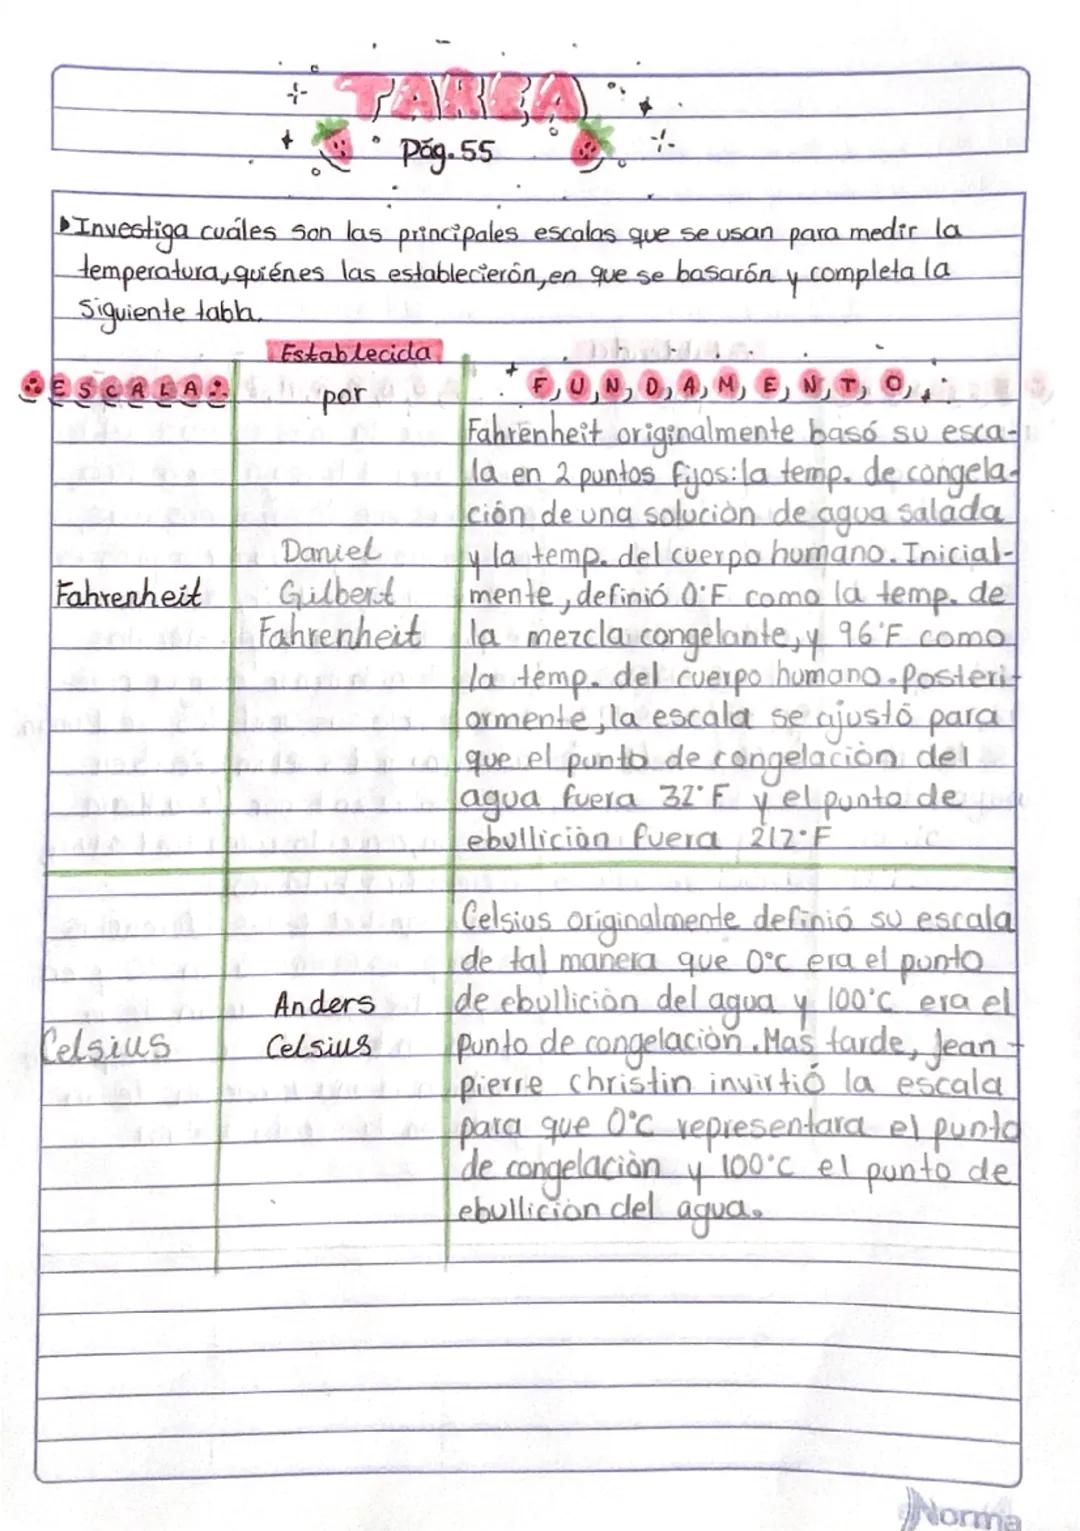 TAREA
Pág. 55
▸Investiga cuáles son las principales escalas que se usan para medir la
temperatura, quiénes las establecierón, en que se basarón y completa la
siguiente tabla.
ESCALA
Establecida
por
FUNDAMENTO
Fahrenheit
Daniel
Gilbert
Fahrenheit
Fahrenheit originalmente basó su esca-
la en 2 puntos fijos: la temp. de congela-
ción de una solución de agua salada
y la temp. del cuerpo humano. Inicial-
mente, definió 0°F como la temp. de
la mezcla congelante, y 96°F como
la temp. del cuerpo humano. Posteri-
ormente, la escala se ajustó para
que el punto de congelación del
agua fuera 32°F y el punto de
ebullición fuera 212°F
Celsius
Anders
Celsius
Celsius originalmente definió su escala
de tal manera que 0°c era el punto
de ebullición del agua y 100°c era el
punto de congelación. Mas tarde, Jean-
pierre christin invirtió la escala
para que 0°c representara el punto
de congelación y 100°c el punto de
ebullición del agua.
Norma